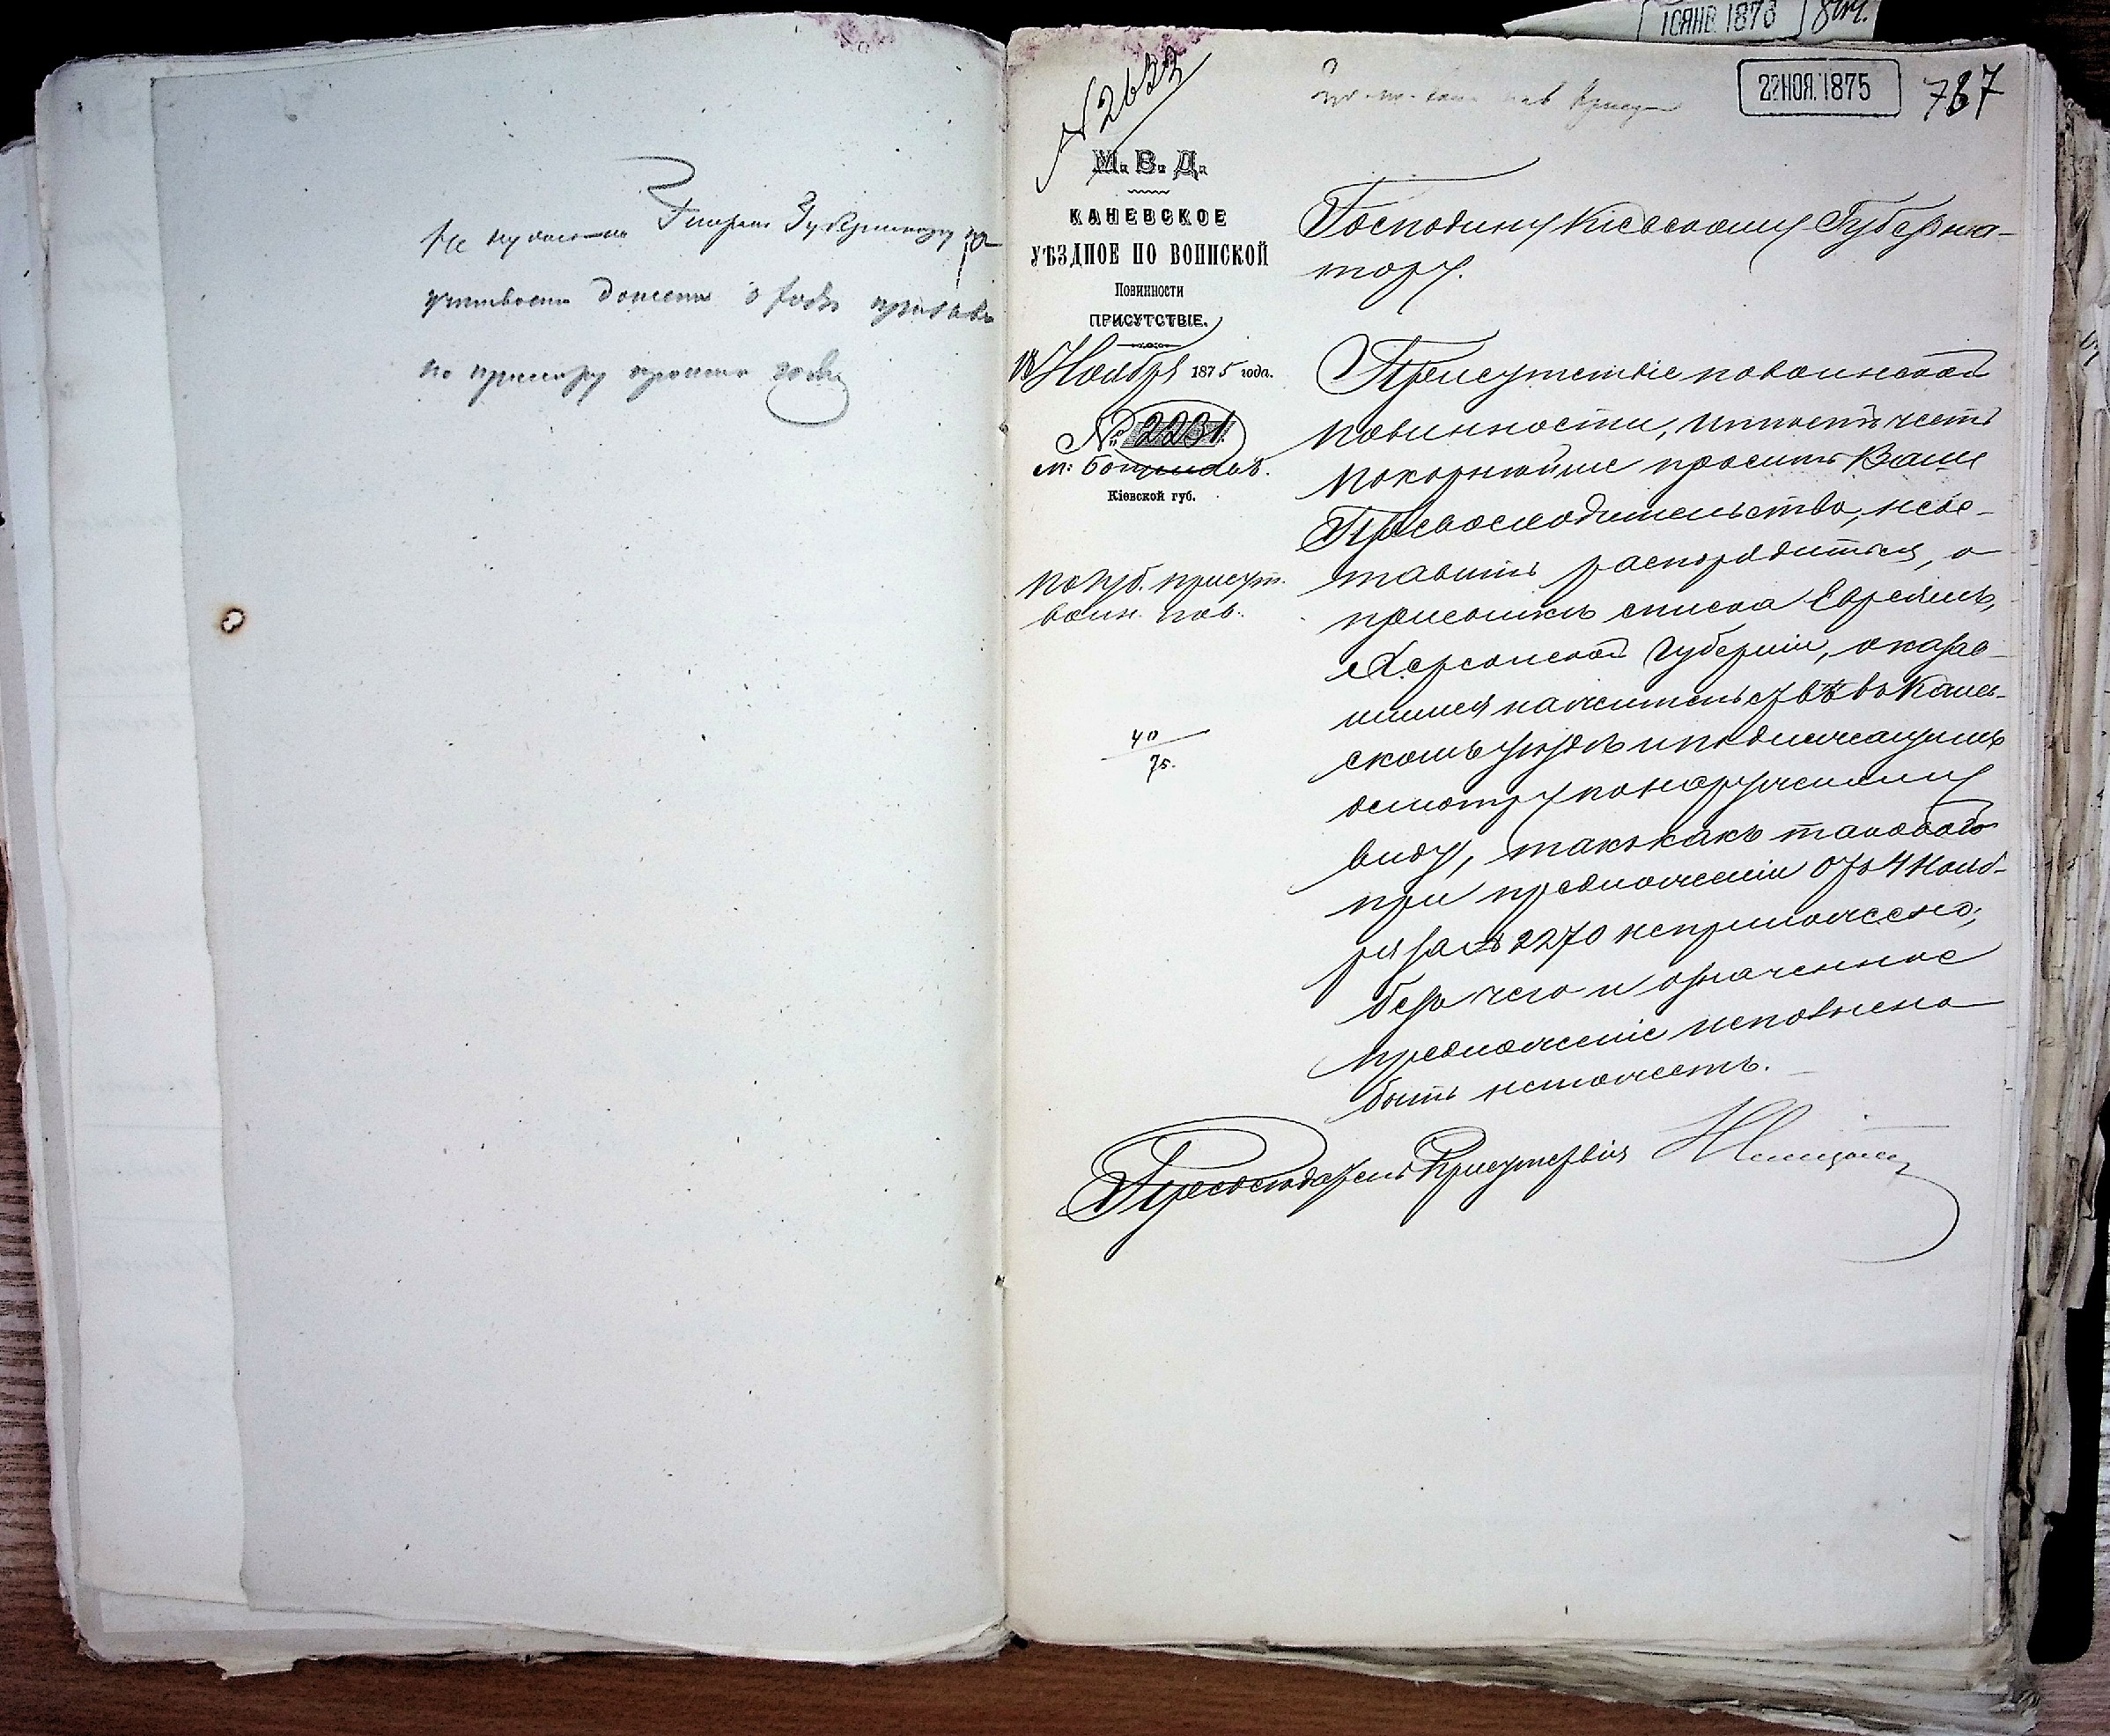 Генералъ Губернатору
по примѣру
10 ЯНВ. 1876
22 НОЯ. 1875
787
№ 2633
М. В. Д.
КАНЕВСКОЕ
УѢЗДНОЕ ПО ВОИНСКОЙ
Повинности
ПРИСУТСТВІЕ.
18 Ноября 1875 года.
№ 2231.
м: Богуславъ.
Кіевской губ.
по губ. присут.
воин. пов.
40
75.
Господину Кіевскому Губерна-
тору.
Присутствіе по воинской
повинности, имѣетъ честь
покорнѣйше просить Ваше
Превосходительство, неос-
тавить распорядиться, о
присылкѣ списка Евреямъ,
Херсонской Губерніи, оказав-
шимся на жительствѣ въ Канев-
скомъ уѣздѣ и подлежащимъ
осмотру по наружному
виду, такъ какъ таковаго
при предложеніи отъ 4 Нояб-
ря за № 2270 неприложено;
безъ чего и означенное
предложеніе исполнено
быть неможетъ.
Предсѣдатель Присутствія